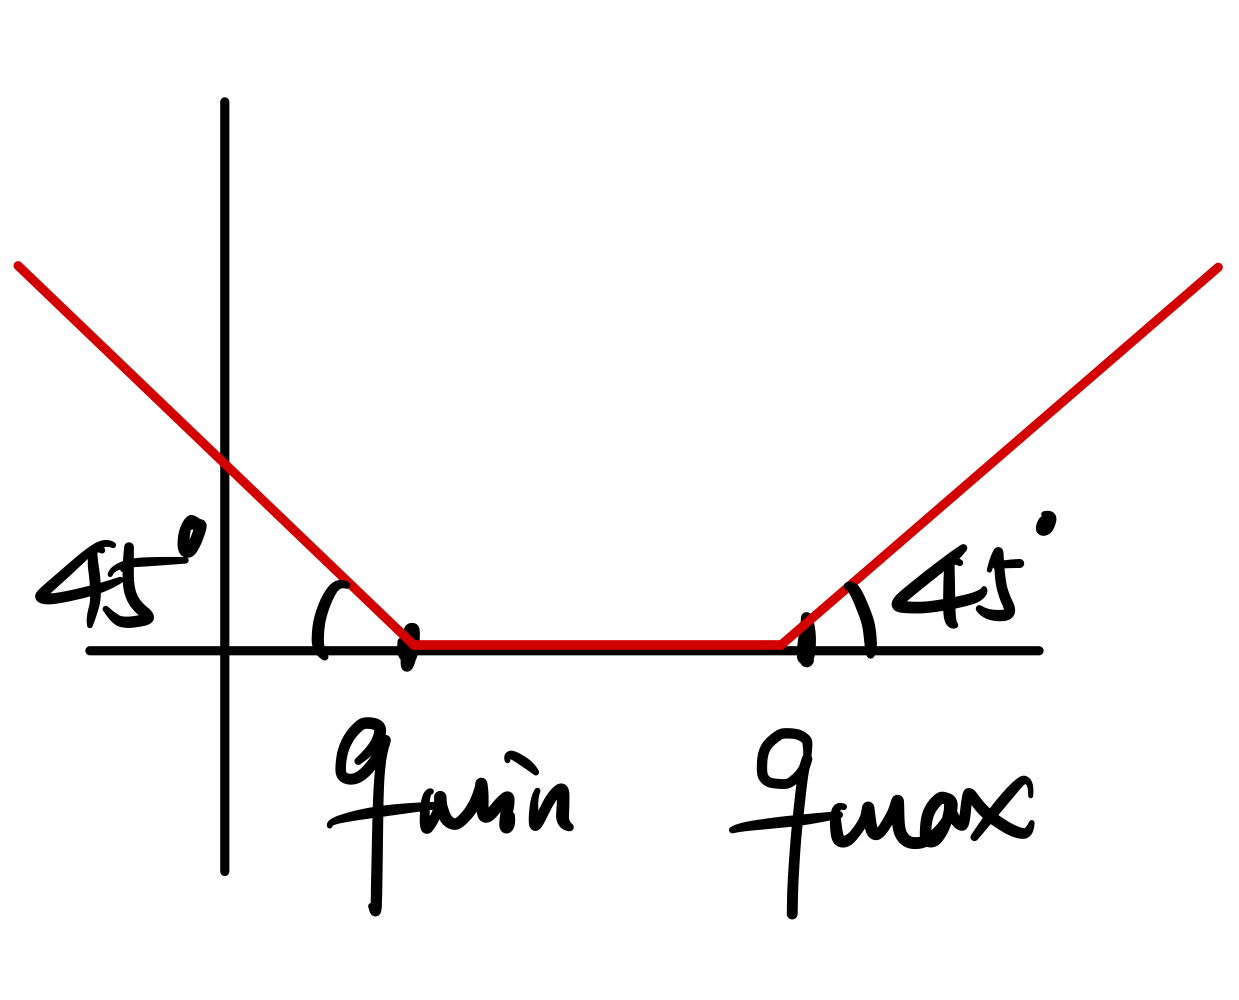 45°
45°
qmin
qmax